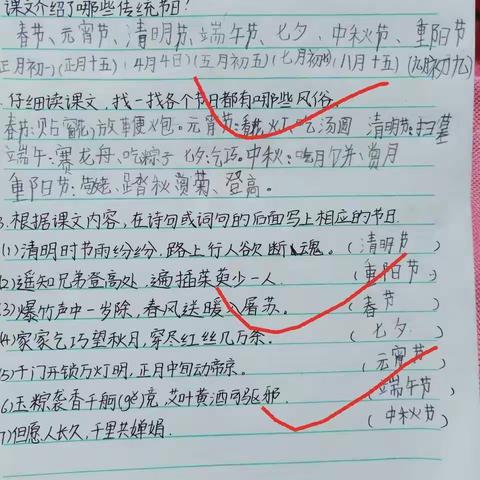 课文介绍了哪些传统节日?
春节、元宵节、清明节、端午节、七夕、中秋节、重阳节
正月初一(正月十五)(4月4日)(五月初五)(七月初七)(八月十五)(九月初九)
仔细读课文,找一找各个节日都有哪些风俗。
春节:贴窗花,放鞭炮。元宵节:看花灯,吃汤圆 清明节:扫墓
端午:赛龙舟、吃粽子 七夕:乞巧。中秋:吃月饼、赏月
重阳节:敬老、踏秋赏菊、登高。
3.根据课文内容,在诗句或词句的后面写上相应的节日.
(1)清明时节雨纷纷,路上行人欲断魂。(清明节
(2)遥知兄弟登高处,遍插茱萸少一人.(重阳节)
(3)爆竹声中一岁除,春风送暖入屠苏。(春节)
(4)家家乞巧望秋月,穿尽红丝几万条.(七夕)
(5)千门开锁万灯明,正月中旬动帝京.(元宵节
(6)玉粽袭香千舸(gě)竞,艾叶黄酒可驱邪.(端午节)
(7)但愿人长久,千里共婵娟.(中秋节)